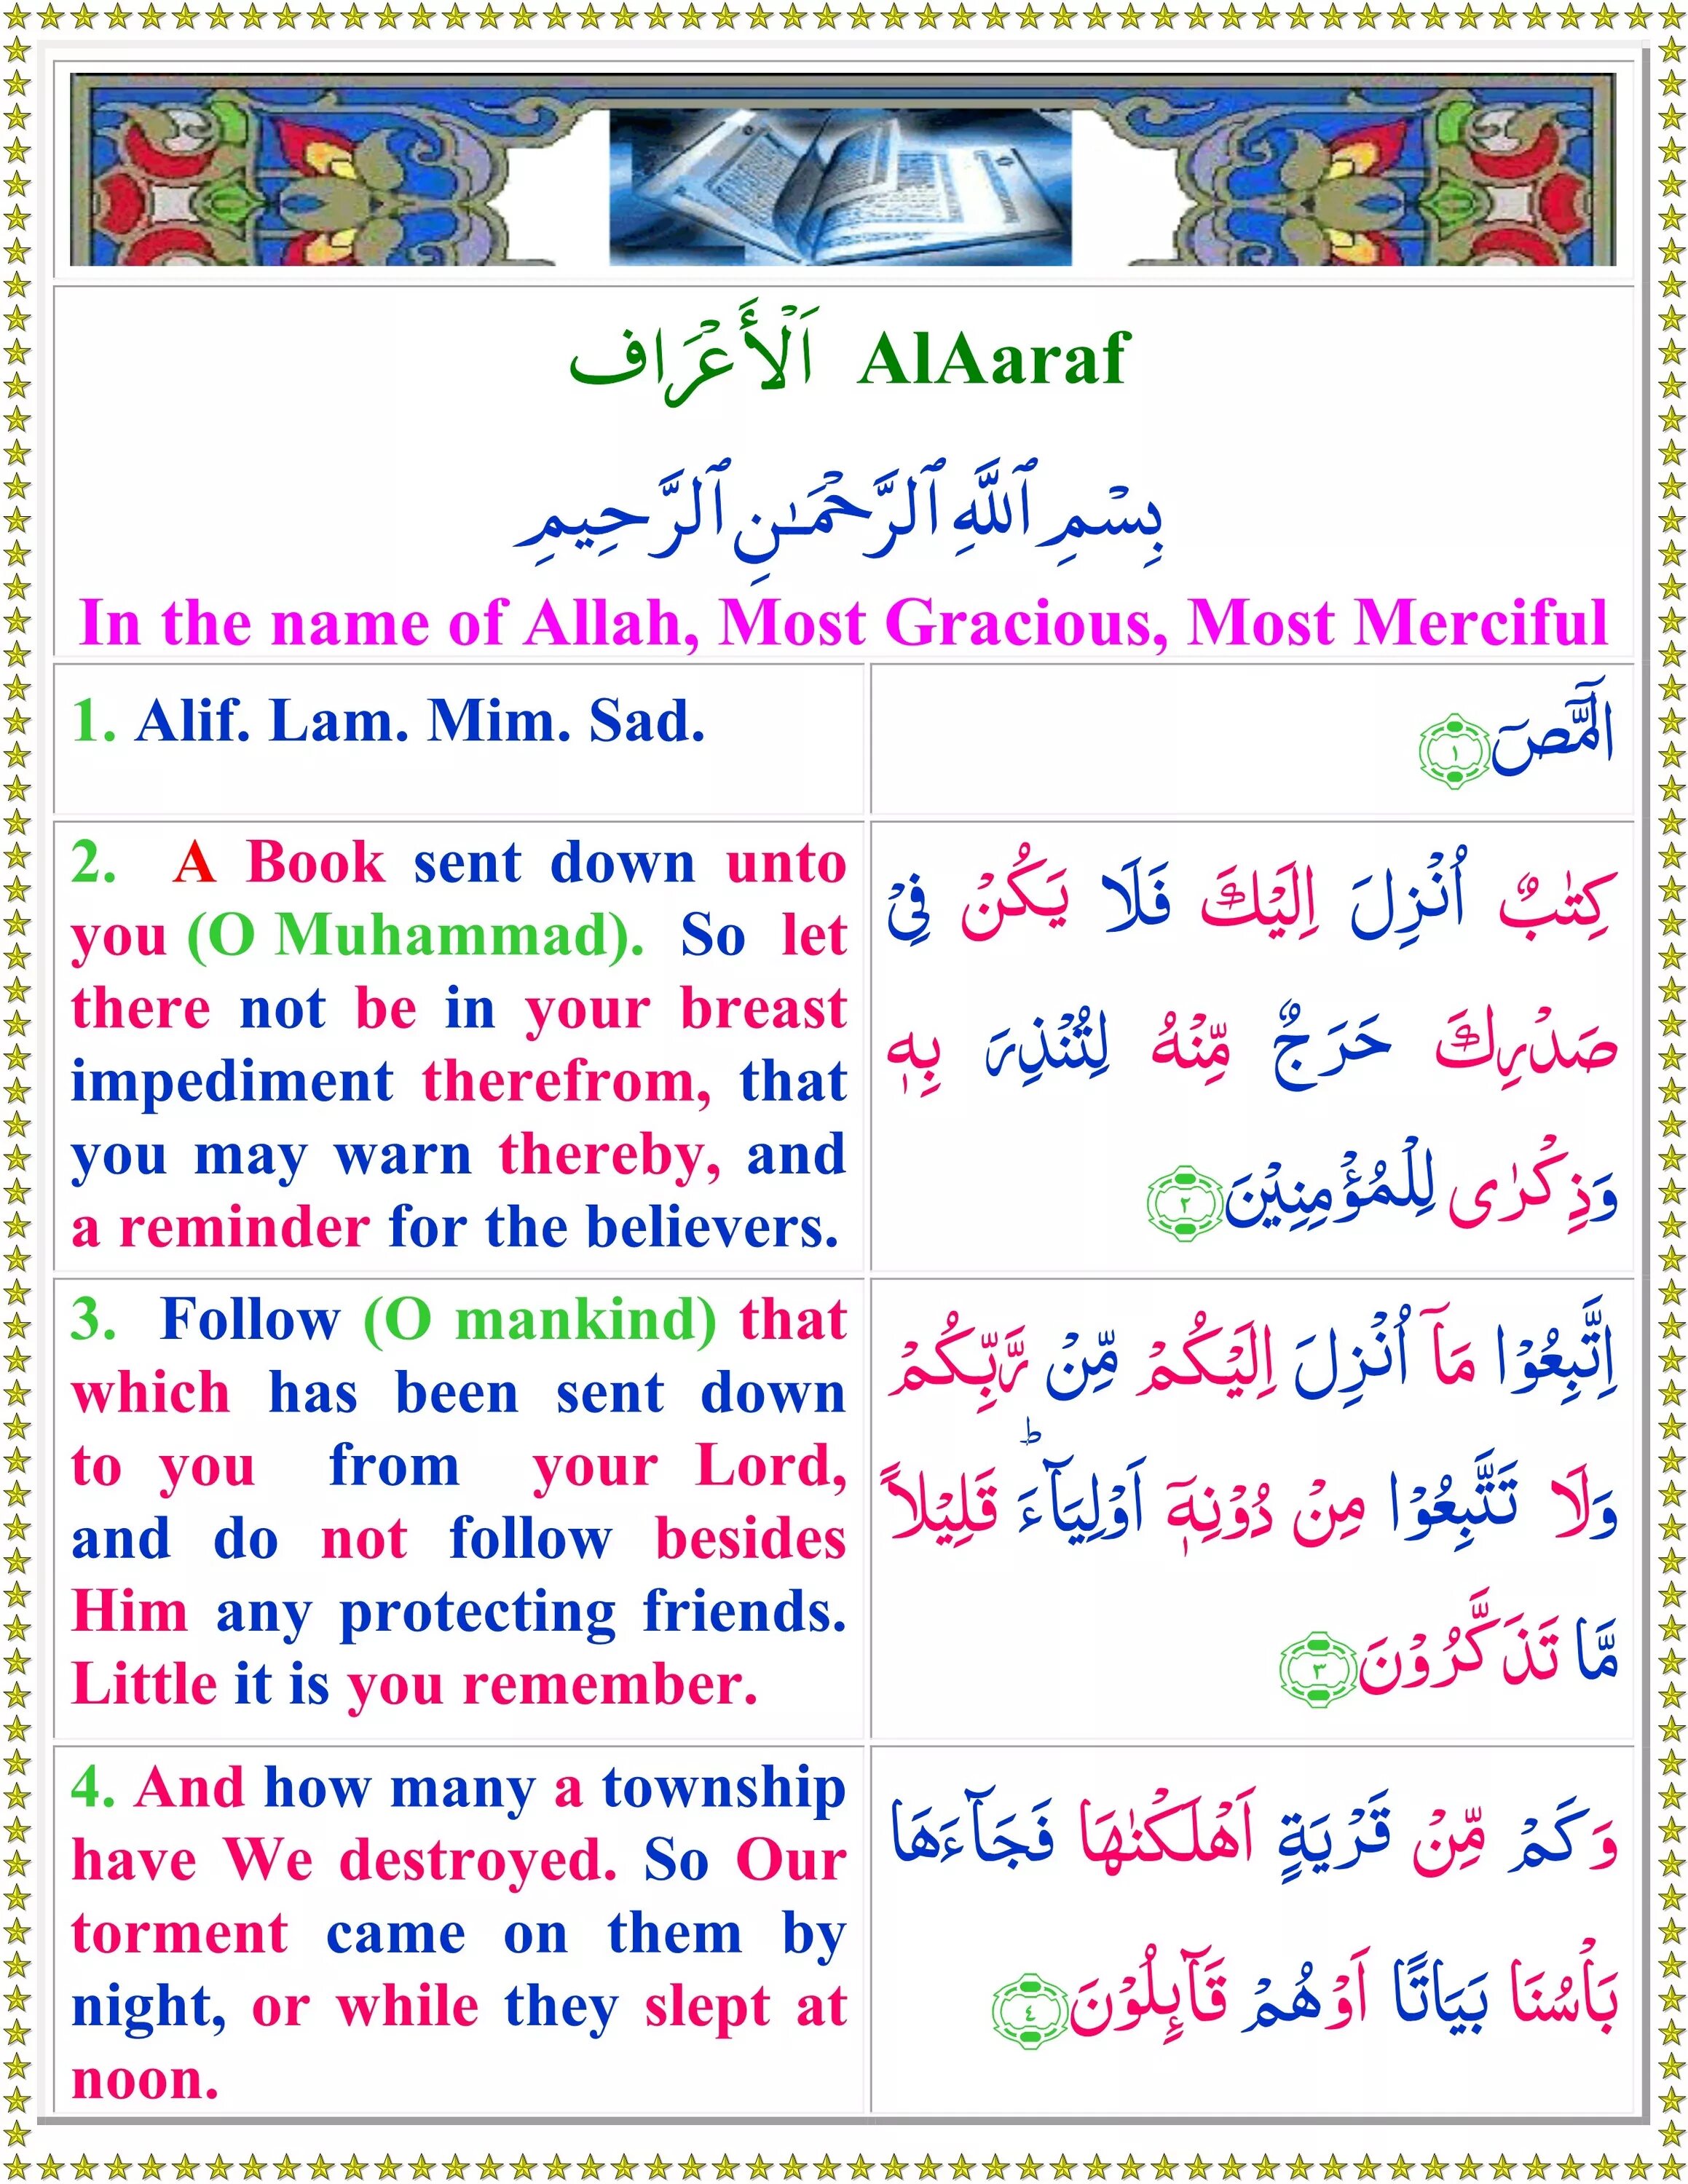 اَلْأَعْرَاف AlAaraf
بِسْمِ ٱللَّهِ ٱلرَّحْمَـٰنِ ٱلرَّحِيمِ
In the name of Allah, Most Gracious, Most Merciful
1. Alif. Lam. Mim. Sad.
الٓمّٓصٓ ١
2. A Book sent down unto
you (O Muhammad). So let
there not be in your breast
impediment therefrom, that
you may warn thereby, and
a reminder for the believers.
كِتٰبٌ اُنْزِلَ اِلَيْكَ فَلَا يَكُنْ فِىْ
صَدْرِكَ حَرَجٌ مِّنْهُ لِتُنْذِرَ بِهٖ
وَذِكْرٰى لِلْمُؤْمِنِيْنَ ٢
3. Follow (O mankind) that
which has been sent down
to you from your Lord,
and do not follow besides
Him any protecting friends.
Little it is you remember.
اِتَّبِعُوْا مَاۤ اُنْزِلَ اِلَيْكُمْ مِّنْ رَّبِّكُمْ
وَلَا تَتَّبِعُوْا مِنْ دُوْنِهٖۤ اَوْلِيَآءَ ؕ قَلِيْلاً
مَّا تَذَكَّرُوْنَ ٣
4. And how many a township
have We destroyed. So Our
torment came on them by
night, or while they slept at
noon.
وَكَمْ مِّنْ قَرْيَةٍ اَهْلَكْنٰهَا فَجَآءَهَا
بَاْسُنَا بَيَاتًا اَوْهُمْ قَآٮِٕلُوْنَ ٤